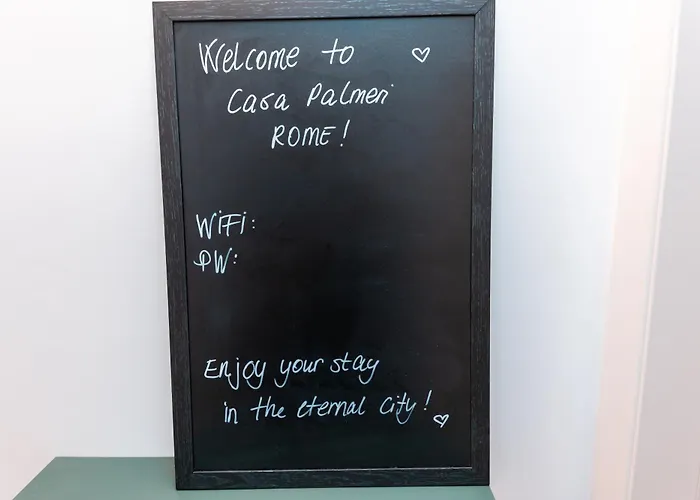 Welcome to ♡
Casa Palmeri
ROME!
WiFi:
PW:
Enjoy your stay
in the eternal city! ♡